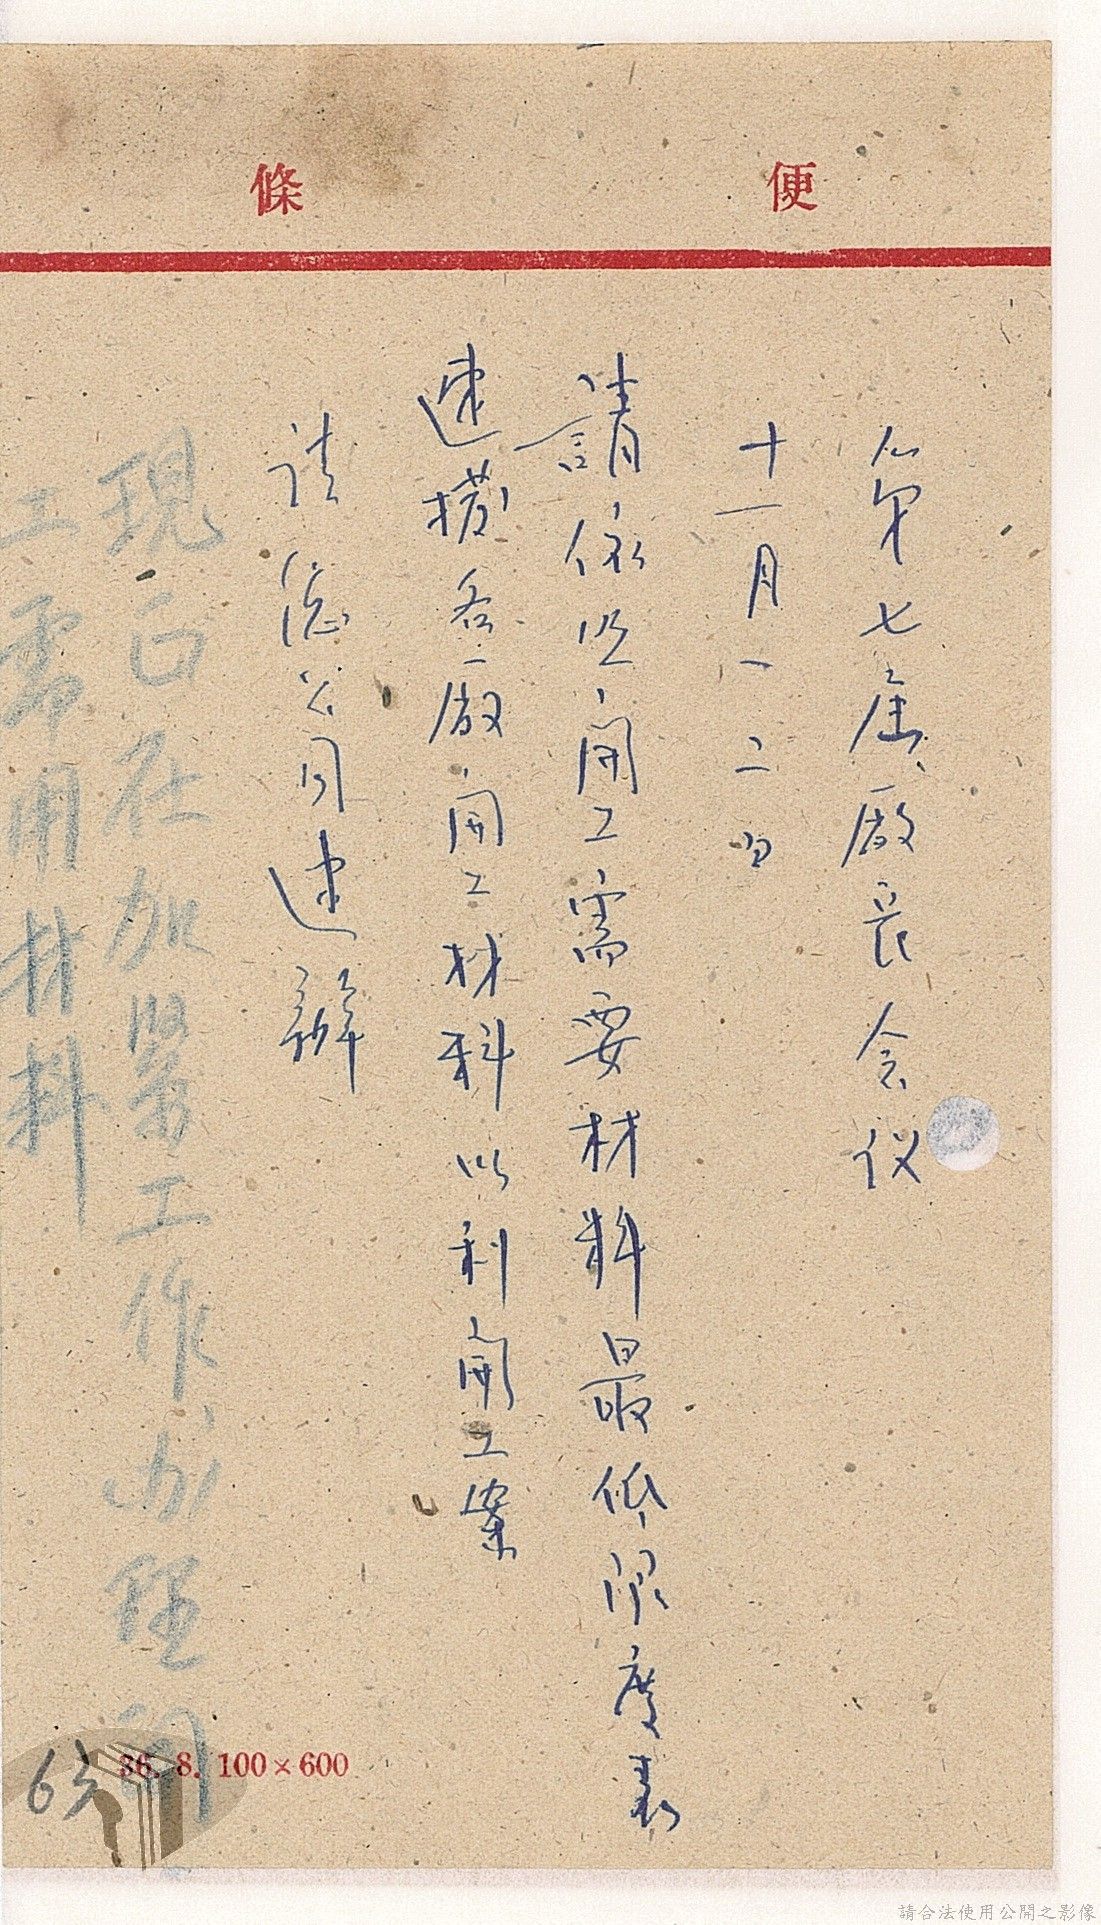 便條
第七屆廠長会议
十一月一二日
請依照開工需要材料最低限度表
速撥各廠開工材料以利開工案
請總公司速辦
現正在加緊工作办理開
工需用材料
36. 8. 100×600
請合法使用公開之影像